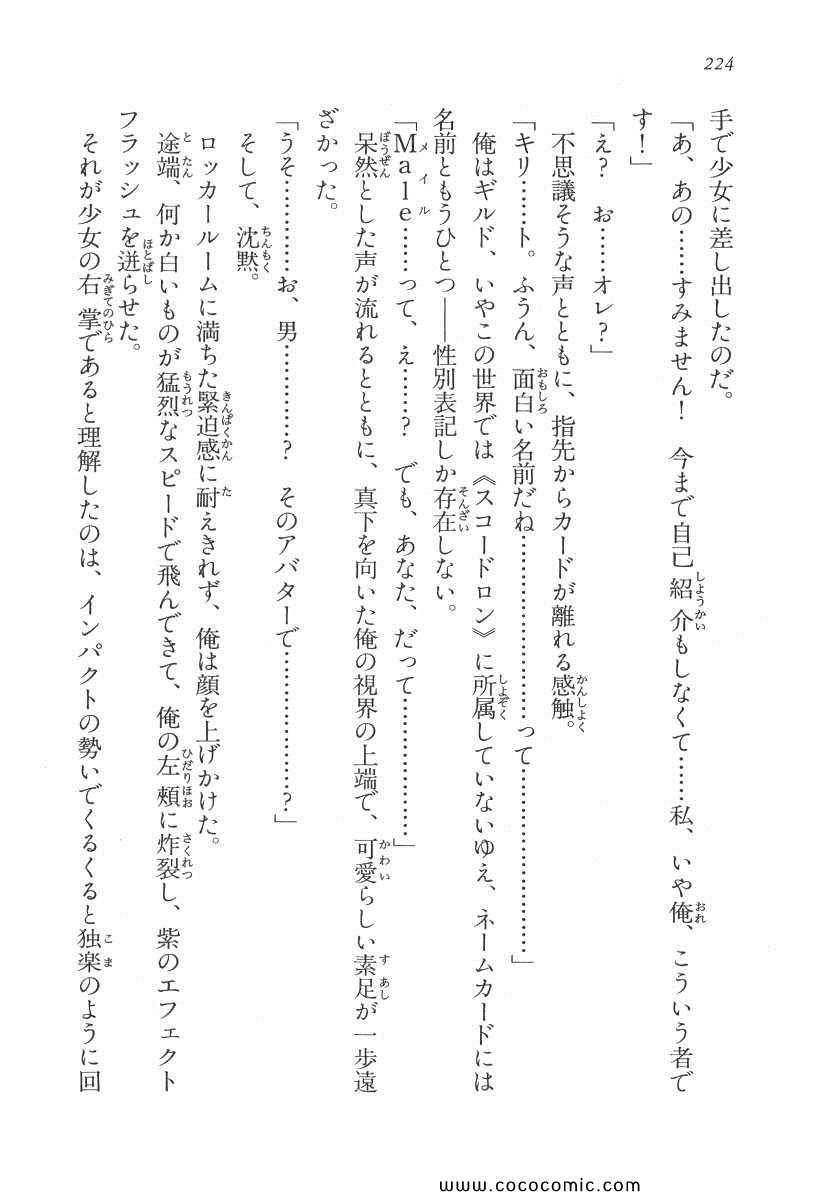 224
手で少女に差し出したのだ。
「あ、あの……すみません！　今まで自己紹介もしなくて……私、いや俺、こういう者で
す！」
「え？　お……オレ？」
不思議そうな声とともに、指先からカードが離れる感触。
「キリ……ト。ふうん、面白い名前だね……………………って…………………………」
俺はギルド、いやこの世界では《スコードロン》に所属していないゆえ、ネームカードには
名前ともうひとつ――性別表記しか存在しない。
「Male……って、え……？　でも、あなた、だって…………………」
呆然とした声が流れるとともに、真下を向いた俺の視界の上端で、可愛らしい素足が一歩遠
ざかった。
「うそ…………お、男…………？　そのアバターで…………………？」
そして、沈黙。
ロッカールームに満ちた緊迫感に耐えきれず、俺は顔を上げかけた。
途端、何か白いものが猛烈なスピードで飛んできて、俺の左頬に炸裂し、紫のエフェクト
フラッシュを迸らせた。
それが少女の右掌であると理解したのは、インパクトの勢いでくるくると独楽のように回
www.cococomic.com/